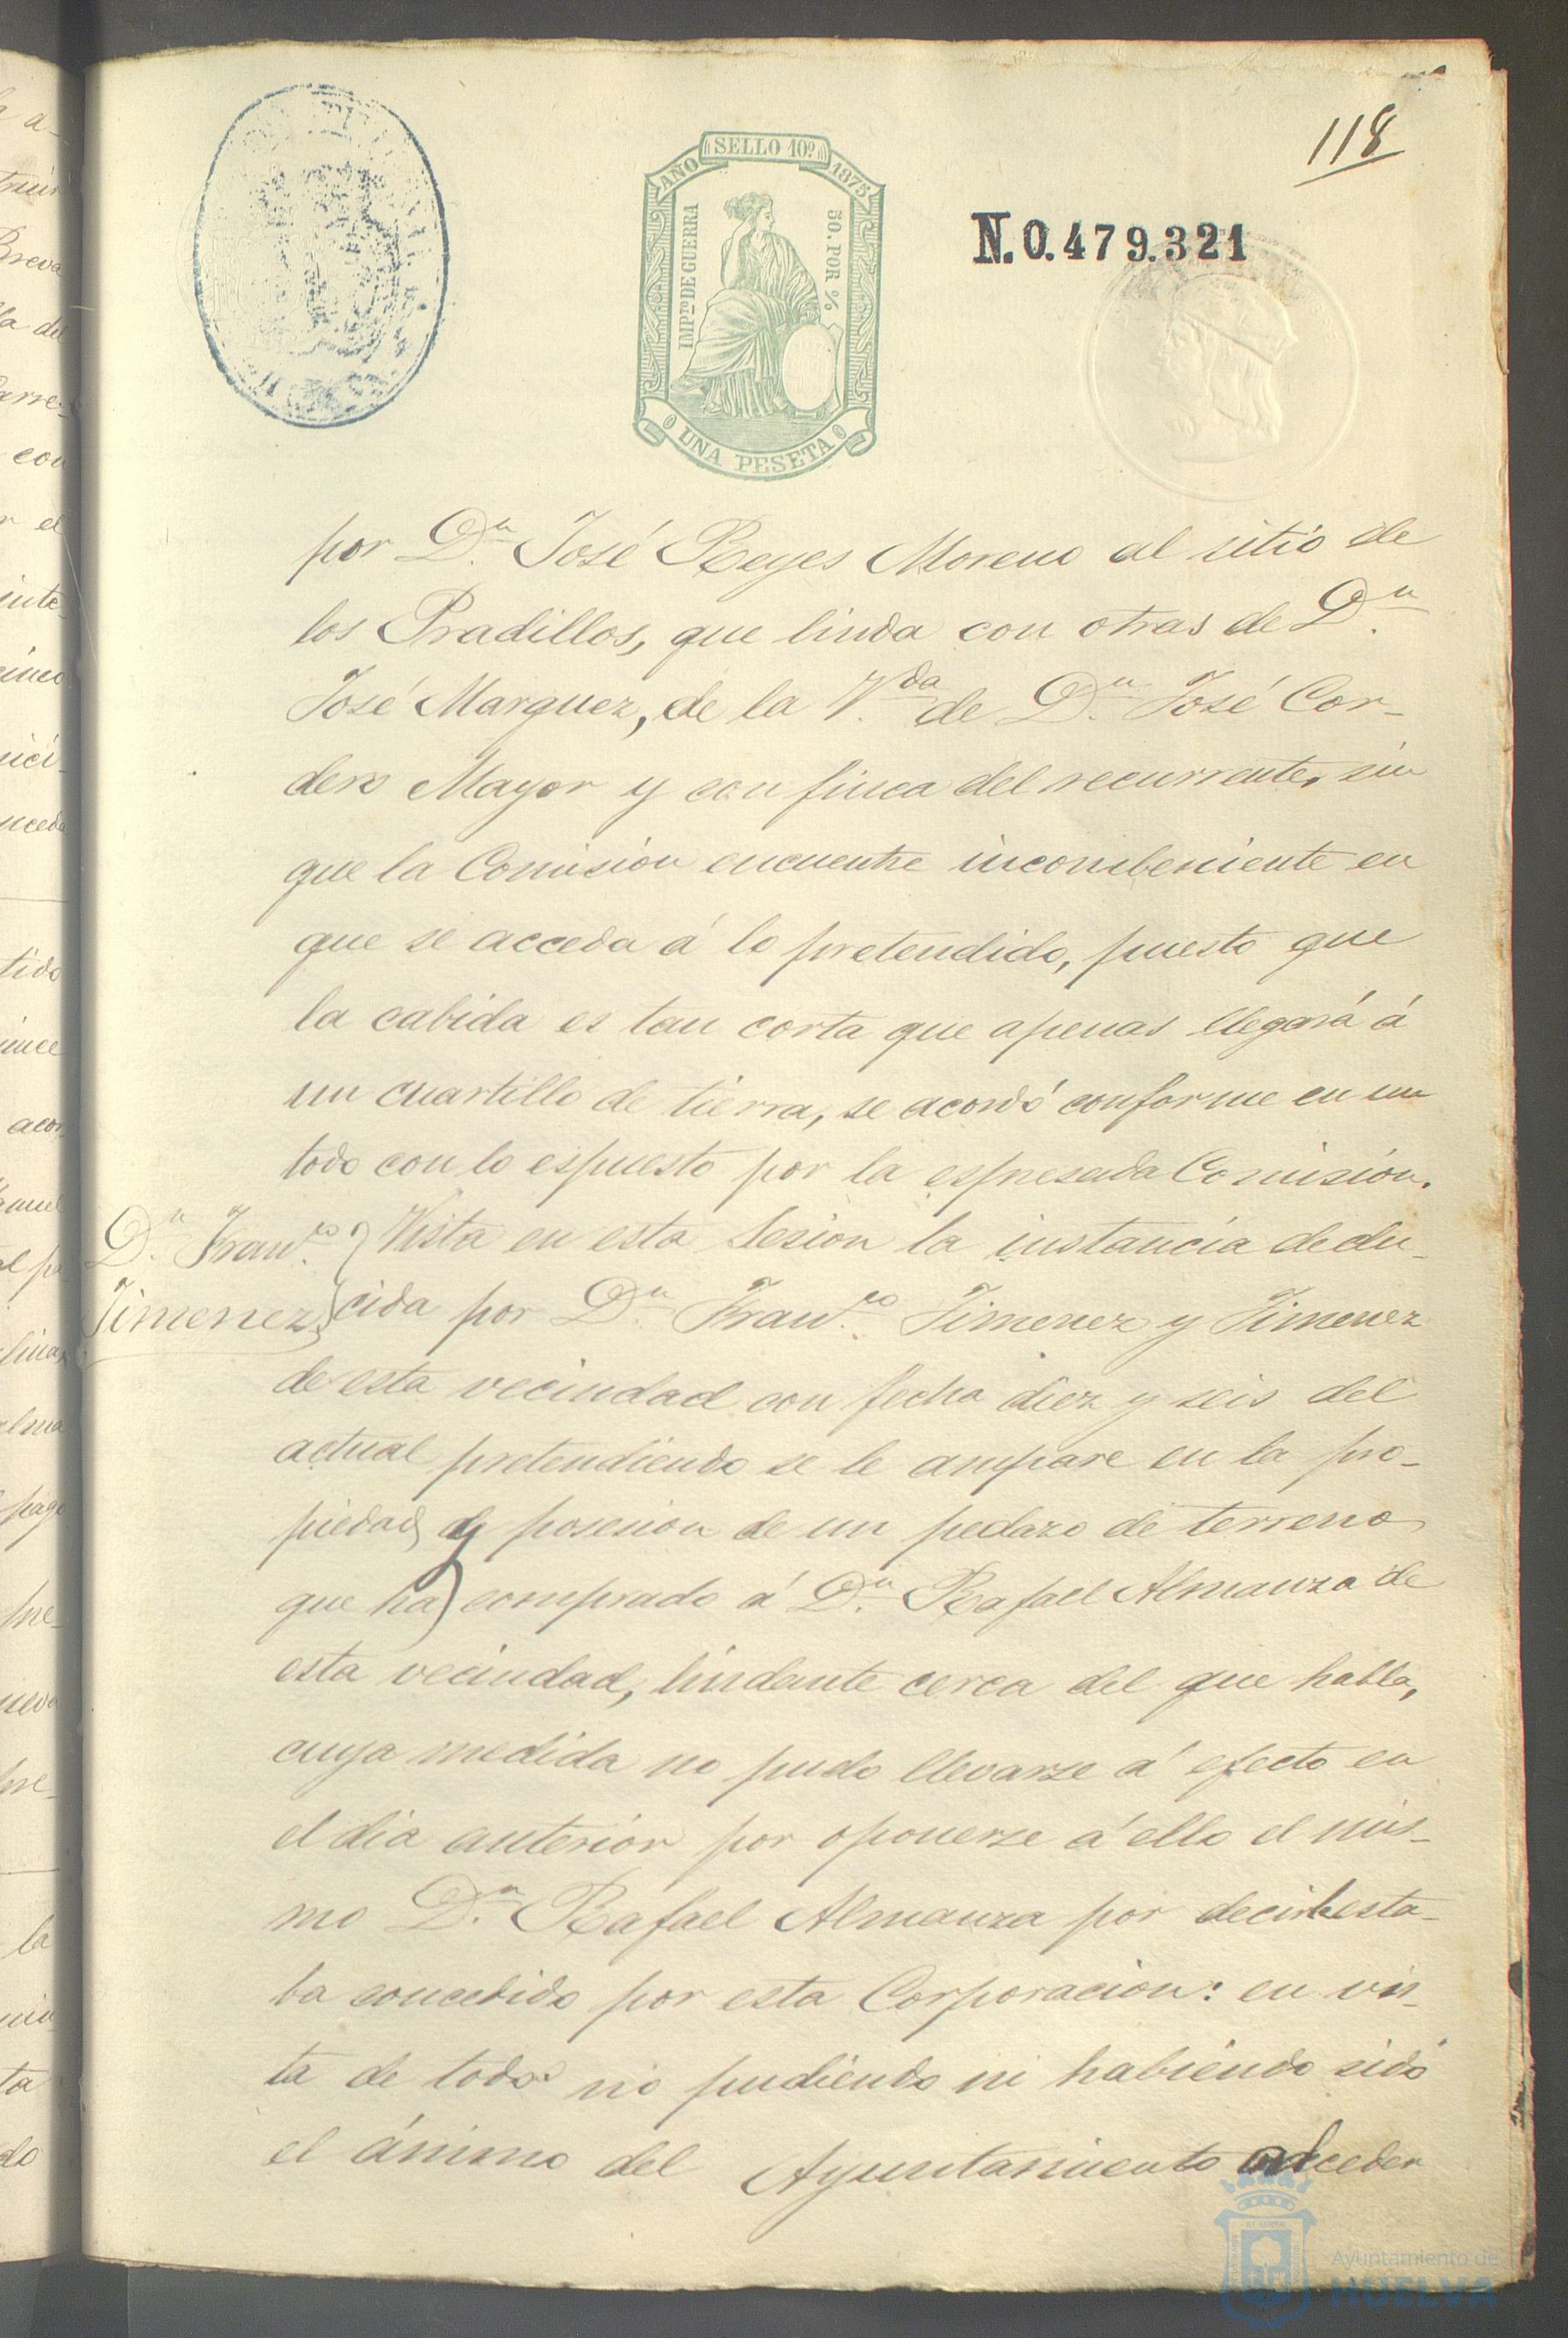 118
AÑO SELLO 10º 1875
IMPTO DE GUERRA
50. POR %
UNA PESETA
N.0.479.321
por Dn. José Reyes Moreno al sitio de
los Pradillos, que linda con otras de Dn.
José Marquez, de la V.da de Dn. José Cor-
dero Mayor y con finca del recurrente, sin
que la Comision encuentre incombeniente en
que se acceda á lo pretendido, puesto que
la cabida es tan corta que apenas llegará á
un cuartillo de tierra, se acordó conforme en un
todo con lo espuesto por la espresada Comision.
Dn. Franco.
Jimenez
Vista en esta Sesion la instancia dedu-
cida por Dn. Franco. Jimenez y Jimenez
de esta vecindad con fecha diez y seis del
actual pretendiendo se le ampare en la pro-
piedad y posesion de un pedazo de terreno
que ha comprado á Dn. Rafael Almanza de
esta vecindad, lindante cerca del que habla,
cuya medida no pudo llevarse á efecto en
el dia anterior por oponerse á ello el mis-
mo Dn. Rafael Almanza por decir esta-
ba concedido por esta Corporacion: en vis-
ta de todo no pudiendo ni habiendo sido
el ánimo del Ayuntamiento acceder
Ayuntamiento de
HUELVA